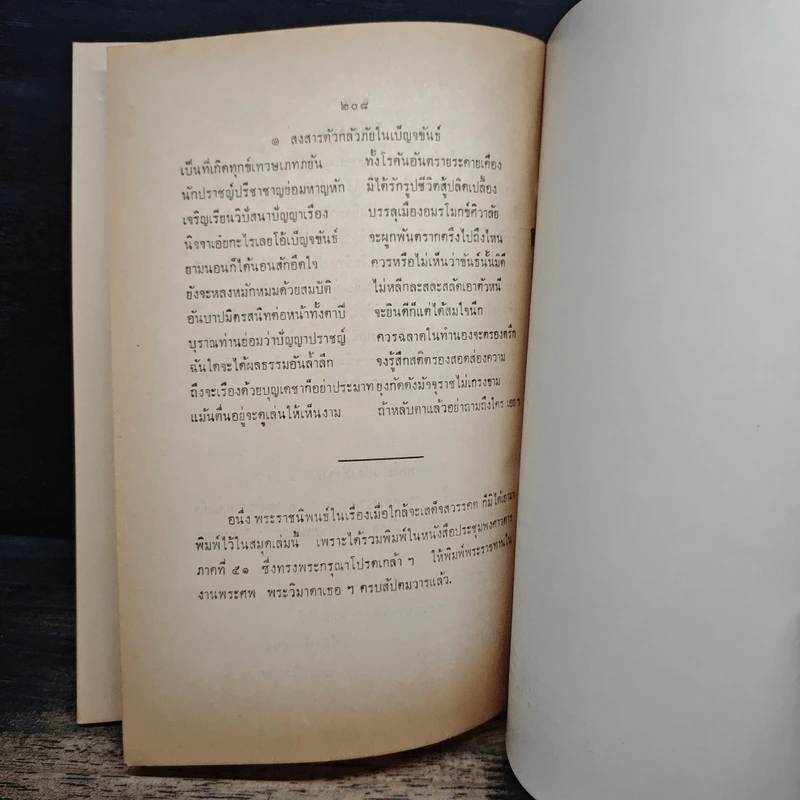 ๒๐๘
๑ สงสารตัวกลัวภัยในเบ็ญจขันธ์
เป็นที่เกิดทุกข์เทวษเภทภยัน ทั้งโรคันอันตรายระคายเคือง
นักปราชญ์ปรีชาชาญย่อมหาญหัก มิได้รักรูปชีวิตสู้ปลิดเปลื้อง
เจริญเรียนวิปัสนาปัญญาเรือง บรรลุเมืองอมรโมกข์ศิวาลัย
นิจจาเอ๋ยกะไรเลยโอ้เบ็ญจขันธ์ จะผูกพันตรากตรึงไปถึงไหน
ยามนอนก็ได้นอนสักอึดใจ ควรหรือไม่เห็นว่าขันธ์นั้นมิดี
ยังจะหลงหมักหมมด้วยสมบัติ ไม่หลีกละสละสลัดเอาตัวหนี
อันบาปมิตรสนิทต่อหน้าทั้งตาปี จะยินดีก็แต่ได้สมใจนึก
บุราณท่านย่อมว่าปัญญาปราชญ์ ควรฉลาดในทำนองจะตรองตรึก
ฉันใดจะได้ผลธรรมอันล้ำลึก จงรู้สึกสติตรองสอดส่องความ
ถึงจะเรืองด้วยบุญเดชาก็อย่าประมาท ยุงกัดดังมัจจุราชไม่เกรงขาม
แม้นตื่นอยู่จะดูเล่นให้เห็นงาม ถ้าหลับตาแล้วอย่าถามถึงใคร เอย ฯ
อนึ่ง พระราชนิพนธ์ในเรื่องเมื่อใกล้จะเสด็จสวรรคต ก็มิได้เอามา
พิมพ์ไว้ในสมุดเล่มนี้ เพราะได้รวมพิมพ์ในหนังสือประชุมพงศาวดาร
ภาคที่ ๕๑ ซึ่งทรงพระกรุณาโปรดเกล้า ฯ ให้พิมพ์พระราชทานใน
งานพระศพ พระวิมาดาเธอ ฯ ครบสัปตมวารแล้ว.